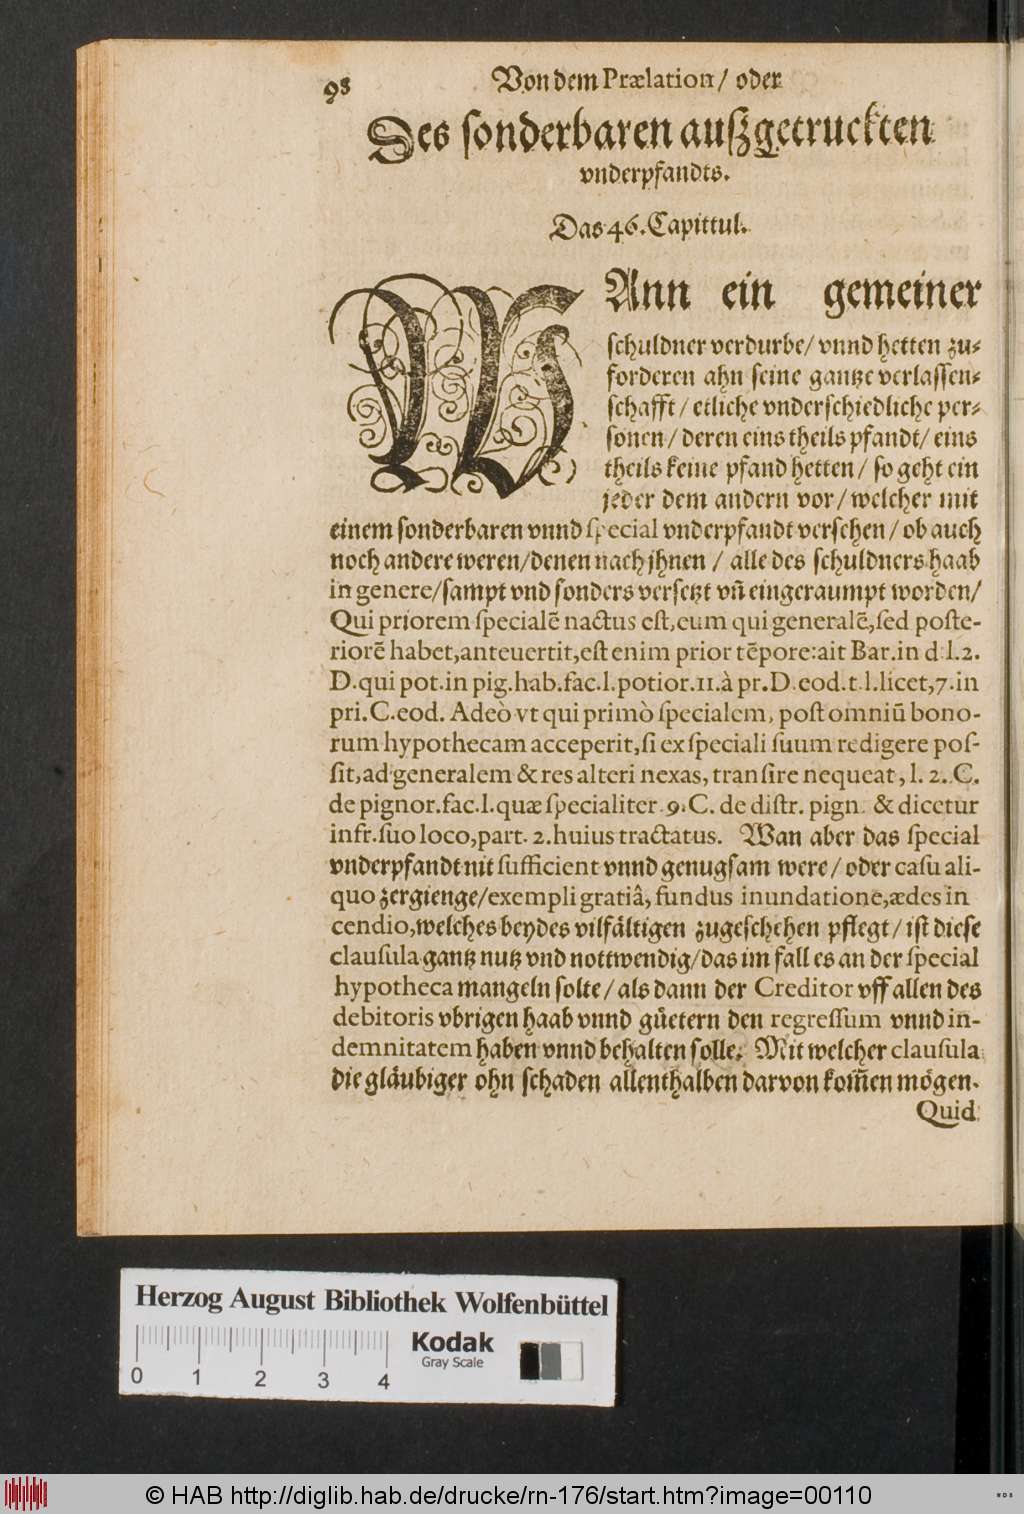 98
Von dem Prælation/ oder
Des sonderbaren außgetruckten
vnderpfandts.
Das 46. Capittul.
WAnn ein gemeiner
schuldner verdurbe/ vnnd hetten zu-
forderen ahn seine gantze verlassen-
schafft/ etliche vnderschiedliche per-
sonen/ deren eins theils pfandt/ eins
theils keine pfand hetten/ so geht ein
jeder dem andern vor/ welcher mit
einem sonderbaren vnnd special vnderpfandt versehen/ ob auch
noch andere weren/denen nach jhnen / alle des schuldners haab
in genere/sampt vnd sonders versetzt vñ eingeraumpt worden/
Qui priorem specialẽ nactus est,eum qui generalẽ,sed poste-
riorẽ habet,anteuertit,est enim prior tẽpore:ait Bar.in d.l.2.
D.qui pot.in pig.hab.fac.l.potior.11.à pr.D.eod.t.l.licet,7.in
pri.C.eod. Adeò vt qui primò specialem, post omniũ bono-
rum hypothecam acceperit,si ex speciali suum redigere pos-
sit,ad generalem & res alteri nexas, transire nequeat, l. 2. C.
de pignor.fac.l.quæ specialiter.9.C. de distr. pign. & dicetur
infr.suo loco,part. 2.huius tractatus. Wan aber das special
vnderpfandt nit sufficient vnnd genugsam were/ oder casu ali-
quo zergienge/exempli gratiâ, fundus inundatione,ædes in
cendio,welches beydes vilfältigen zugeschehen pflegt/ ist diese
clausula gantz nutz vnd nottwendig/das im fall es an der special
hypotheca mangeln solte/ als dann der Creditor vff allen des
debitoris vbrigen haab vnnd güetern den regressum vnnd in-
demnitatem haben vnnd behalten solle. Mit welcher clausula
die gläubiger ohn schaden allenthalben darvon kom̃en mögen.
Quid
Herzog August Bibliothek Wolfenbüttel
Kodak
Gray Scale
0 1 2 3 4
© HAB http://diglib.hab.de/drucke/rn-176/start.htm?image=00110